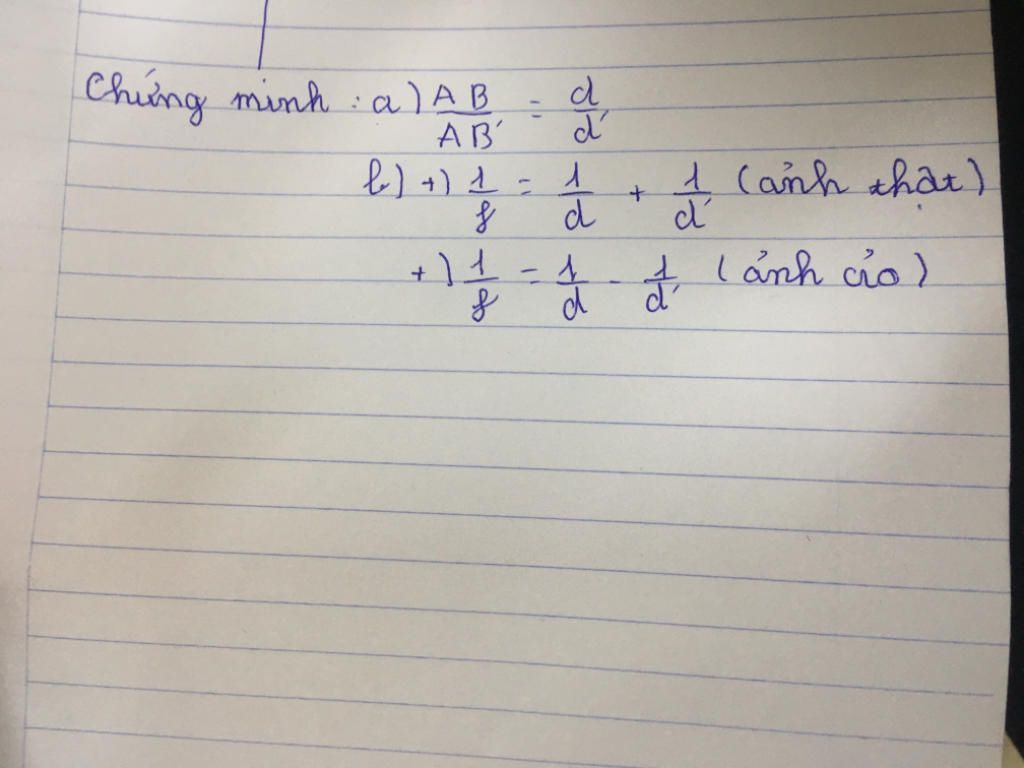 Chứng minh : a) AB/AB' = d/d'
b) +) 1/f = 1/d + 1/d' (ảnh thật)
+) 1/f = 1/d - 1/d' (ảnh ảo)